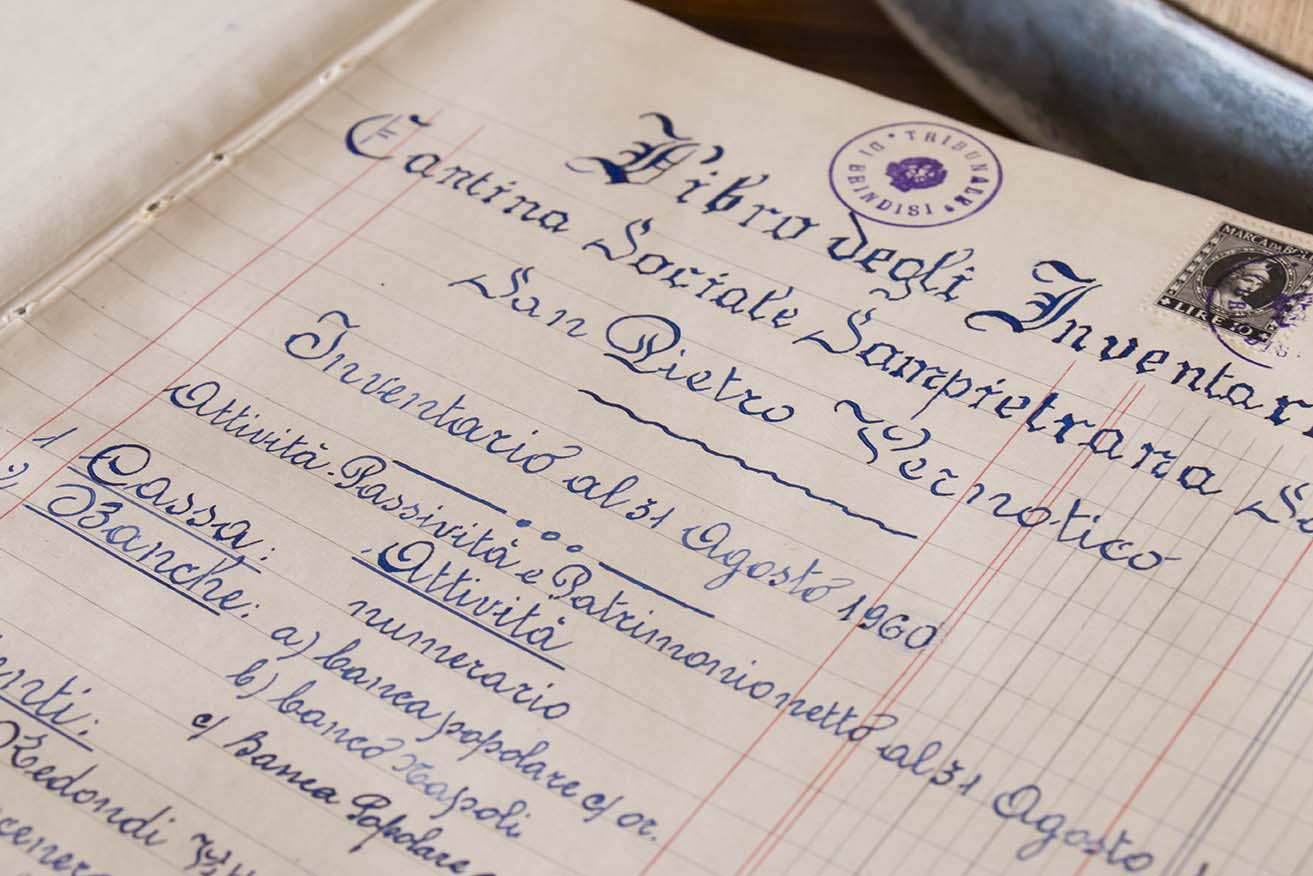 Libro degli Inventari
TRIBUNALE DI BRINDISI
MARCA DA BOLLO
LIRE
Cantina Sociale Sampietrana
San Pietro Vernotico
Inventario al 31 Agosto 1960
Attività - Passività e Patrimonio netto al 31 Agosto
Attività
1 Cassa: numerario
2) Banche: a) banca popolare c/ or.
b) banco Napoli
c/ Banca Popolare
Redondi